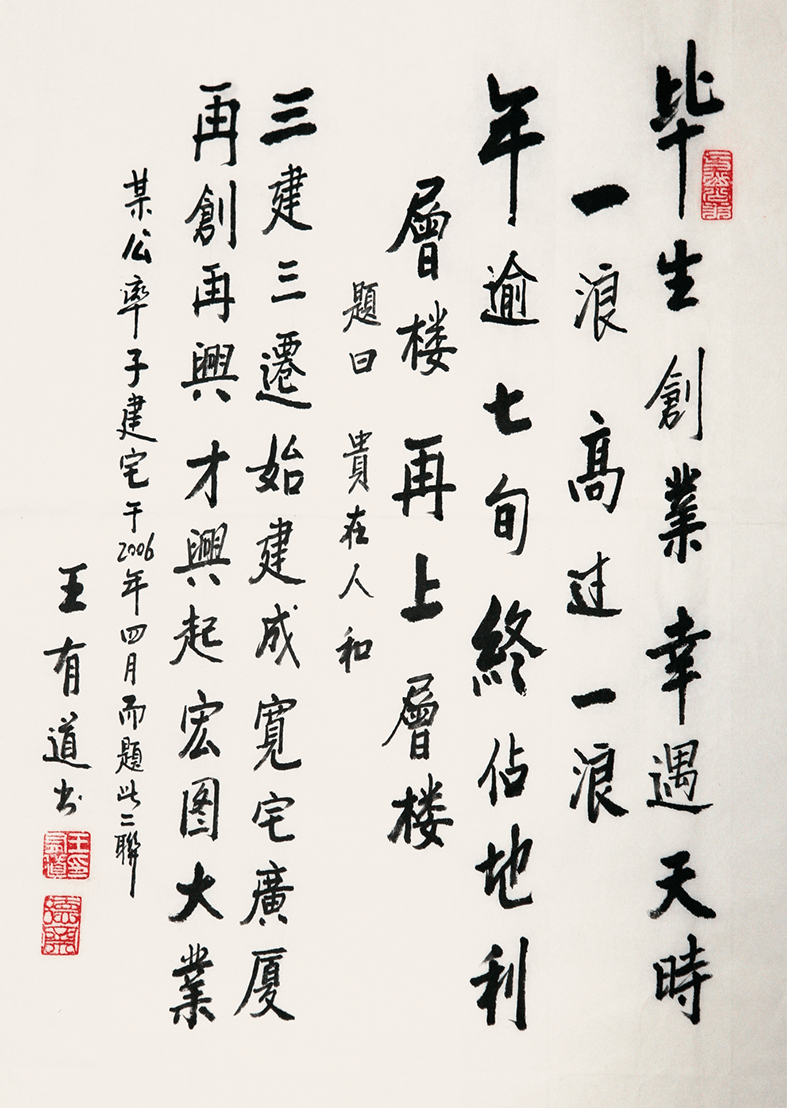 毕生創業幸遇天時
一浪高过一浪
年逾七旬終佔地利
層楼再上層楼
題曰 貴在人和
三建三遷始建成寬宅廣厦
再創再興才興起宏图大業
某公率子建宅于2006年四月而題此二聯
王有道书